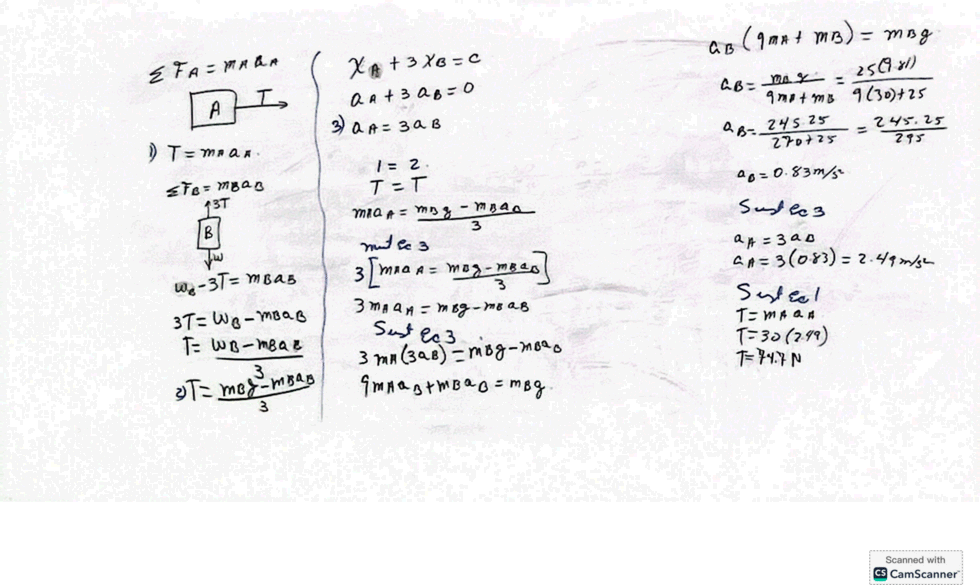 Σ FA = mA aA
A T
1) T = mA aA.
Σ FB = mB aB
3T
B
W
WB - 3T = mB aB
3T = WB - mB aB
T = WB - mB aB / 3
2) T = mB g - mB aB / 3
XA + 3 XB = C
aA + 3 aB = 0
3) aA = 3 aB
1 = 2.
T = T
mA aA = mB g - mB aB / 3
ec 3
3 [ mA aA = mB g - mB aB / 3 ]
3 mA aA = mB g - mB aB
Sust Ec 3
3 mA (3 aB) = mB g - mB aB
9 mA aB + mB aB = mB g.
aB (9 mA + mB) = mB g.
aB = mB g / 9 mA + mB = 25(9.81) / 9(30)+25
aB = 245.25 / 270+25 = 245.25 / 295
aB = 0.83 m/s²
Sust ec 3
aA = 3 aB
aA = 3(0.83) = 2.49 m/s²
Sust Ec 1
T = mA aA
T = 30 (2.49)
T = 74.7 N
Scanned with
CS CamScanner